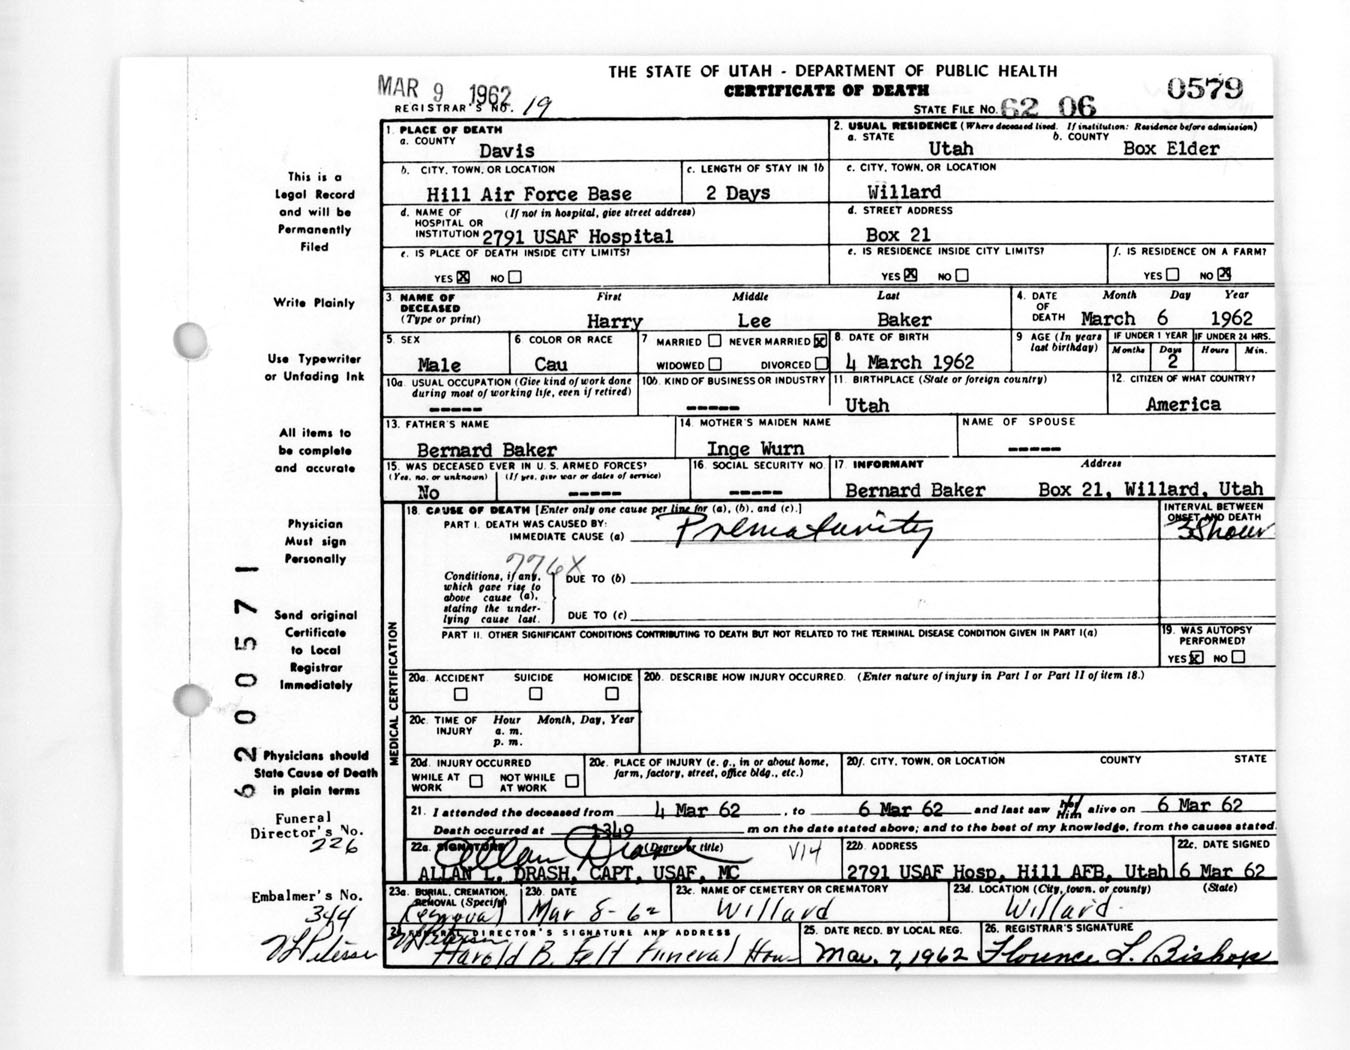 THE STATE OF UTAH - DEPARTMENT OF PUBLIC HEALTH
MAR 9 1962 CERTIFICATE OF DEATH 0579
REGISTRAR'S NO. 19 STATE FILE NO. 62 06
1. PLACE OF DEATH
a. COUNTY Davis
2. USUAL RESIDENCE (Where deceased lived. If institution: Residence before admission)
a. STATE Utah b. COUNTY Box Elder
b. CITY, TOWN, OR LOCATION Hill Air Force Base
c. LENGTH OF STAY IN 1b 2 Days
c. CITY, TOWN, OR LOCATION Willard
d. NAME OF HOSPITAL OR INSTITUTION (If not in hospital, give street address) 2791 USAF Hospital
d. STREET ADDRESS Box 21
e. IS PLACE OF DEATH INSIDE CITY LIMITS? YES X NO
e. IS RESIDENCE INSIDE CITY LIMITS? YES X NO
f. IS RESIDENCE ON A FARM? YES NO X
3 NAME OF DECEASED (Type or print) First Harry Middle Lee Last Baker
4. DATE OF DEATH Month Day Year March 6 1962
5. SEX Male
6 COLOR OR RACE Cau
7 MARRIED NEVER MARRIED X WIDOWED DIVORCED
8. DATE OF BIRTH 4 March 1962
9 AGE (In years last birthday) IF UNDER 1 YEAR Months Days 2 IF UNDER 24 HRS. Hours Min.
10a. USUAL OCCUPATION (Give kind of work done during most of working life, even if retired) -----
10b. KIND OF BUSINESS OR INDUSTRY -----
11. BIRTHPLACE (State or foreign country) Utah
12. CITIZEN OF WHAT COUNTRY? America
13. FATHER'S NAME Bernard Baker
14. MOTHER'S MAIDEN NAME Inge Wurn
NAME OF SPOUSE -----
15. WAS DECEASED EVER IN U. S. ARMED FORCES? (Yes, no, or unknown) No (If yes, give war or dates of service) -----
16. SOCIAL SECURITY NO. -----
17. INFORMANT Bernard Baker Address Box 21, Willard, Utah
MEDICAL CERTIFICATION
18. CAUSE OF DEATH [Enter only one cause per line for (a), (b), and (c).]
PART I. DEATH WAS CAUSED BY:
IMMEDIATE CAUSE (a) Prematurity
INTERVAL BETWEEN ONSET AND DEATH
776X
Conditions, if any, which gave rise to above cause (a), stating the underlying cause last.
DUE TO (b)
DUE TO (c)
PART II. OTHER SIGNIFICANT CONDITIONS CONTRIBUTING TO DEATH BUT NOT RELATED TO THE TERMINAL DISEASE CONDITION GIVEN IN PART I(a)
19. WAS AUTOPSY PERFORMED? YES X NO
20a. ACCIDENT SUICIDE HOMICIDE
20b. DESCRIBE HOW INJURY OCCURRED. (Enter nature of injury in Part I or Part II of item 18.)
20c. TIME OF INJURY Hour a. m. p. m. Month, Day, Year
20d. INJURY OCCURRED WHILE AT WORK NOT WHILE AT WORK
20e. PLACE OF INJURY (e. g., in or about home, farm, factory, street, office bldg., etc.)
20f. CITY, TOWN, OR LOCATION COUNTY STATE
21. I attended the deceased from 4 Mar 62, to 6 Mar 62 and last saw Her Him alive on 6 Mar 62
Death occurred at 1349 m on the date stated above; and to the best of my knowledge, from the causes stated.
22a. SIGNATURE (Degree or title) Allan Drash V14
ALLAN L. DRASH, CAPT, USAF, MC
22b. ADDRESS 2791 USAF Hosp, Hill AFB, Utah
22c. DATE SIGNED 6 Mar 62
23a. BURIAL, CREMATION, REMOVAL (Specify) Removal
23b. DATE Mar 8-62
23c. NAME OF CEMETERY OR CREMATORY Willard
23d. LOCATION (City, town, or county) (State) Willard
24. FUNERAL DIRECTOR'S SIGNATURE AND ADDRESS
Harold B. Felt Funeral Home
25. DATE RECD. BY LOCAL REG. Mar. 7, 1962
26. REGISTRAR'S SIGNATURE Florence L. Bishop
This is a
Legal Record
and will be
Permanently
Filed
Write Plainly
Use Typewriter
or Unfading Ink
All items to
be complete
and accurate
Physician
Must sign
Personally
Send original
Certificate
to Local
Registrar
Immediately
Physicians should
State Cause of Death
in plain terms
Funeral
Director's No.
226
Embalmer's No.
344
6200571